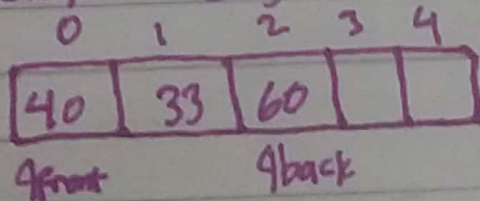 0 1 2 3 4
40 33 60
qfront qback